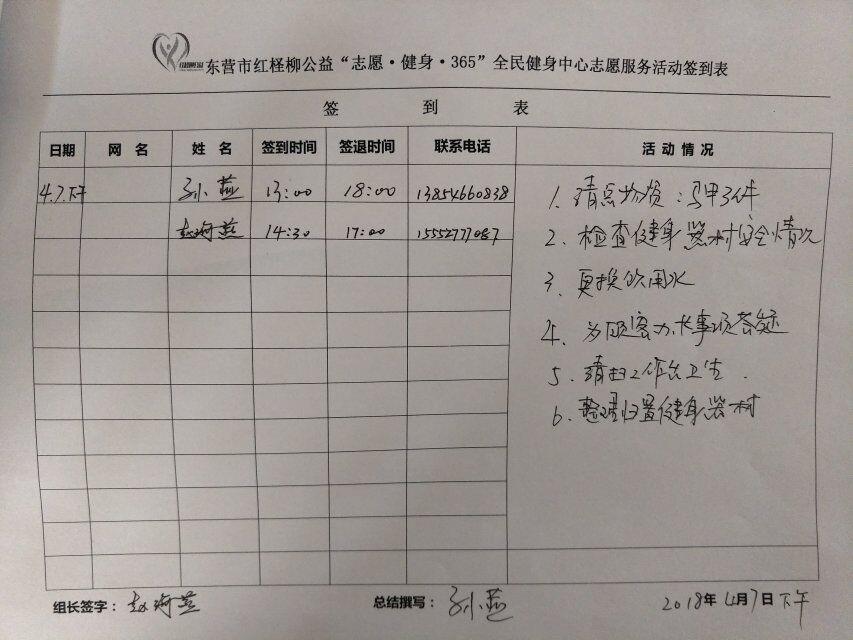 东营市红柽柳公益“志愿·健身·365”全民健身中心志愿服务活动签到表
签 到 表
日期 网名 姓名 签到时间 签退时间 联系电话 活动情况
4.7.下午 孙燕 13:00 18:00 13854660838
赵海燕 14:30 17:00 15552777087
1. 清点物资：马甲3件
2. 检查健身器材安全情况
3. 更换饮用水
4. 为顾客办卡事项答疑
5. 清扫工作台卫生.
6. 整理归置健身器材
组长签字：赵海燕 总结撰写：孙燕 2018年4月7日下午